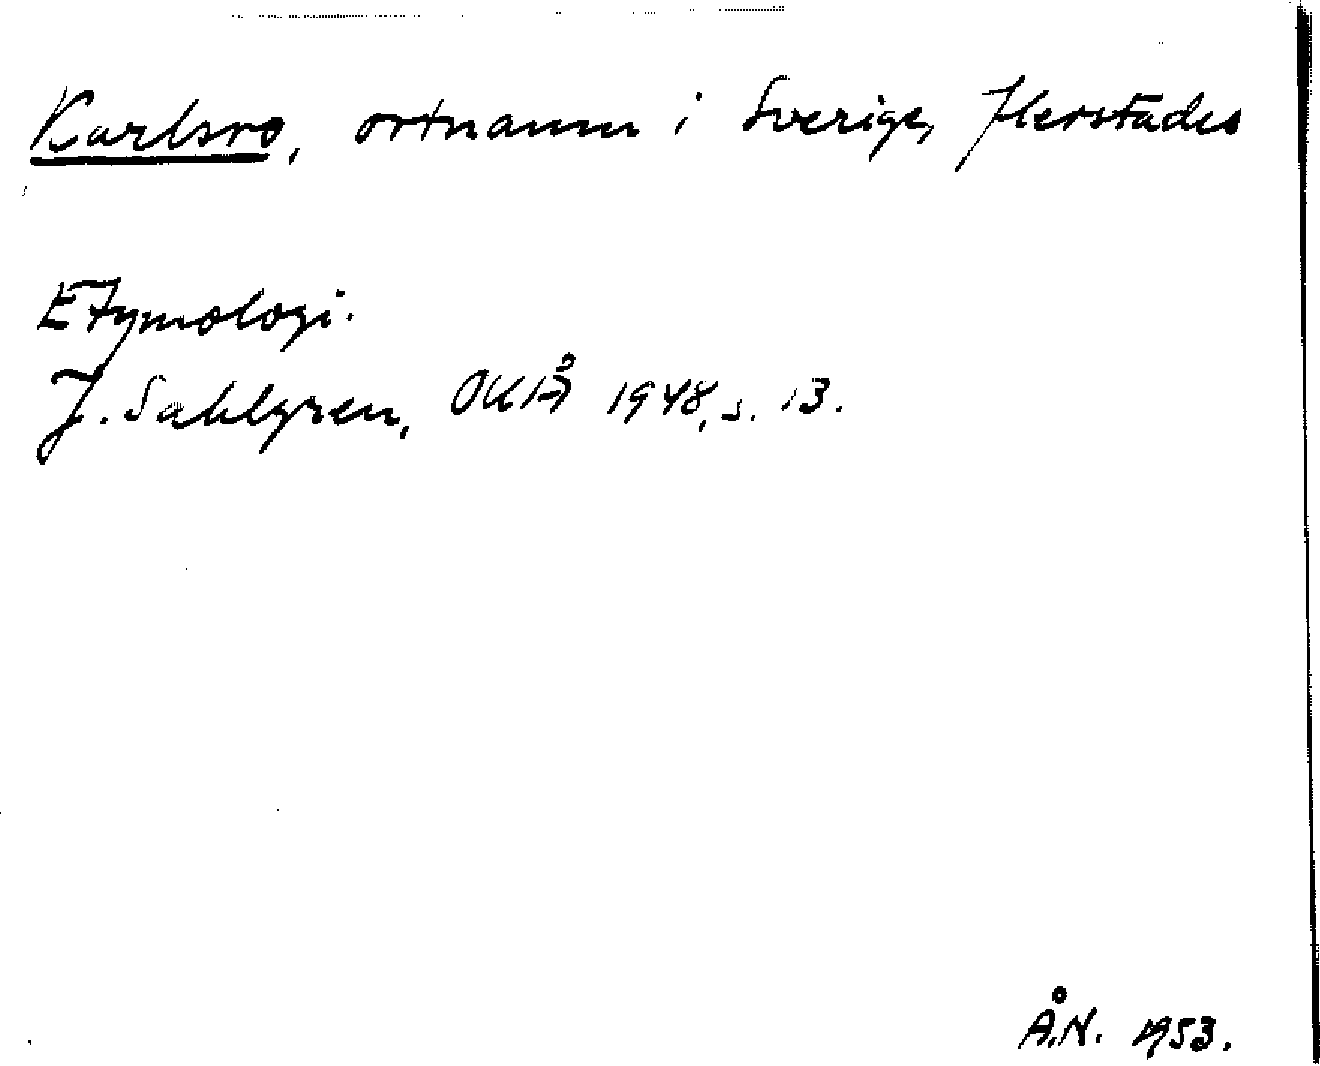 Karlsro, ortnamn i Sverige, flerstädes
Etymologi.
J. Sahlgren, OKÅ 1948, s. 13.
Å.N. 1953.